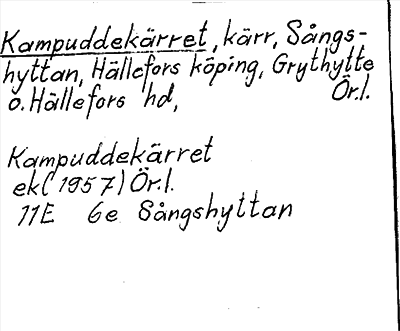 Kampuddekärret, kärr, Sångs-
hyttan, Hällefors köping, Grythytte
o. Hällefors hd, Ör.l.
Kampuddekärret
ek (1957) Ör.l.
11E 6e Sångshyttan